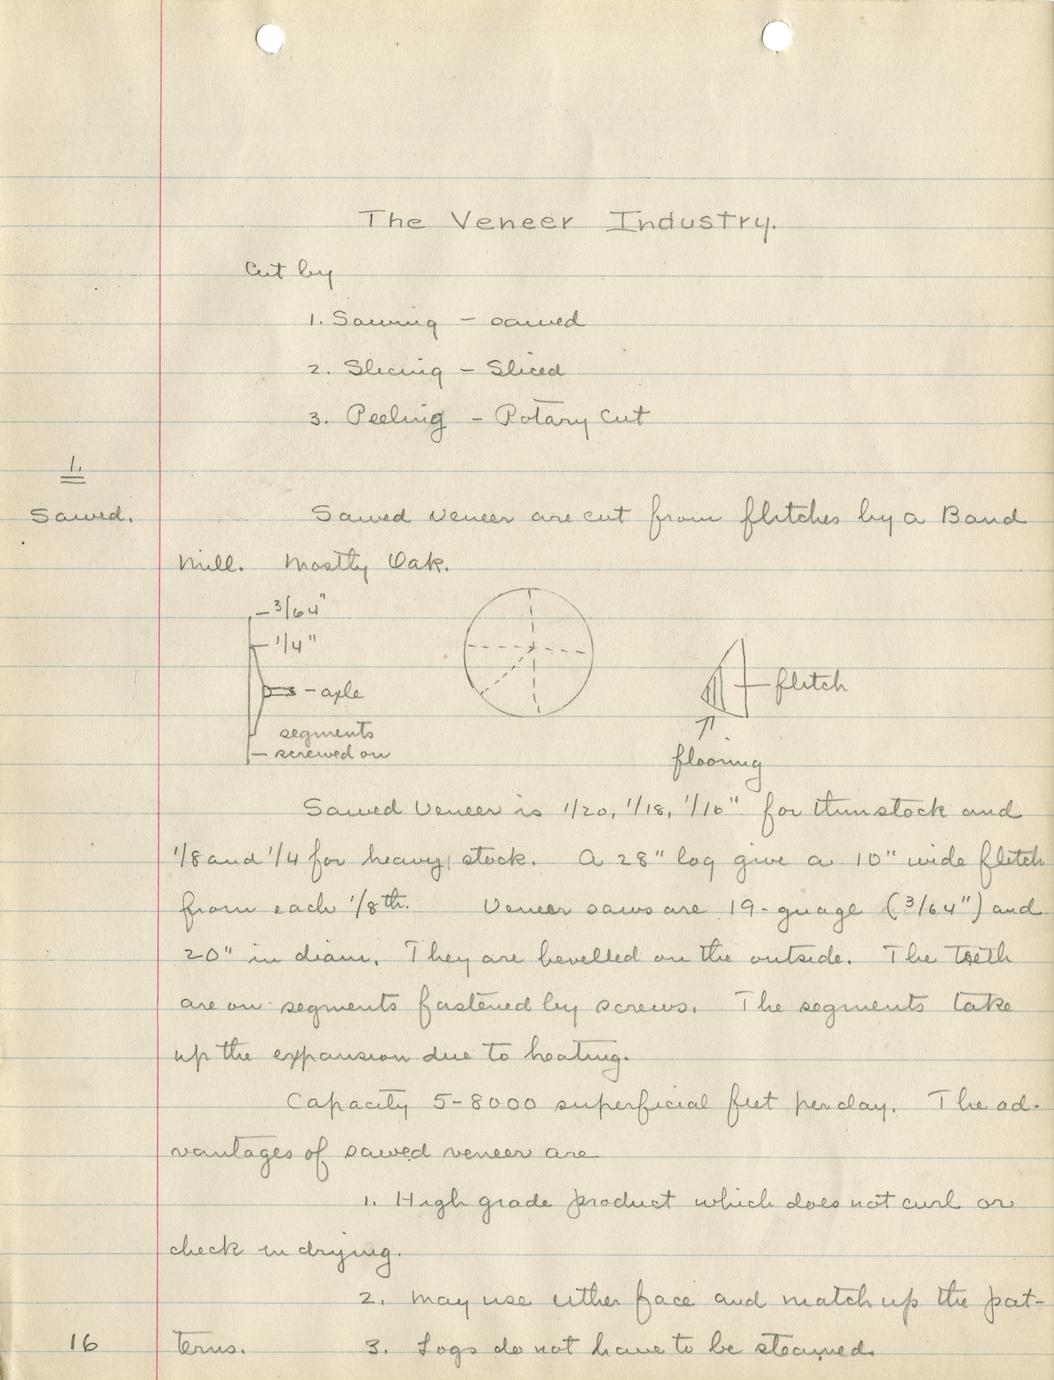 The Veneer Industry.
Cut by
1. Sawing - sawed
2. Slicing - Sliced
3. Peeling - Rotary Cut
1.
Sawed.
Sawed Veneer are cut from flitches by a Band
Mill. Mostly Oak.
3/64"
1/4"
- axle
segments
screwed on
flitch
flooring
Sawed Veneer is 1/20, 1/18, 1/16" for thin stock and
1/8 and 1/4 for heavy stock. A 28" log give a 10" wide flitch
from each 1/8th. Veneer saws are 19-guage (3/64") and
20" in diam. They are bevelled on the outside. The teeth
are on segments fastened by screws. The segments take
up the expansion due to heating.
Capacity 5-8000 superficial feet per day. The ad-
vantages of sawed veneer are
1. High grade product which does not curl or
check in drying.
2. May use either face and match up the pat-
terns. 3. Logs do not have to be steamed.
16